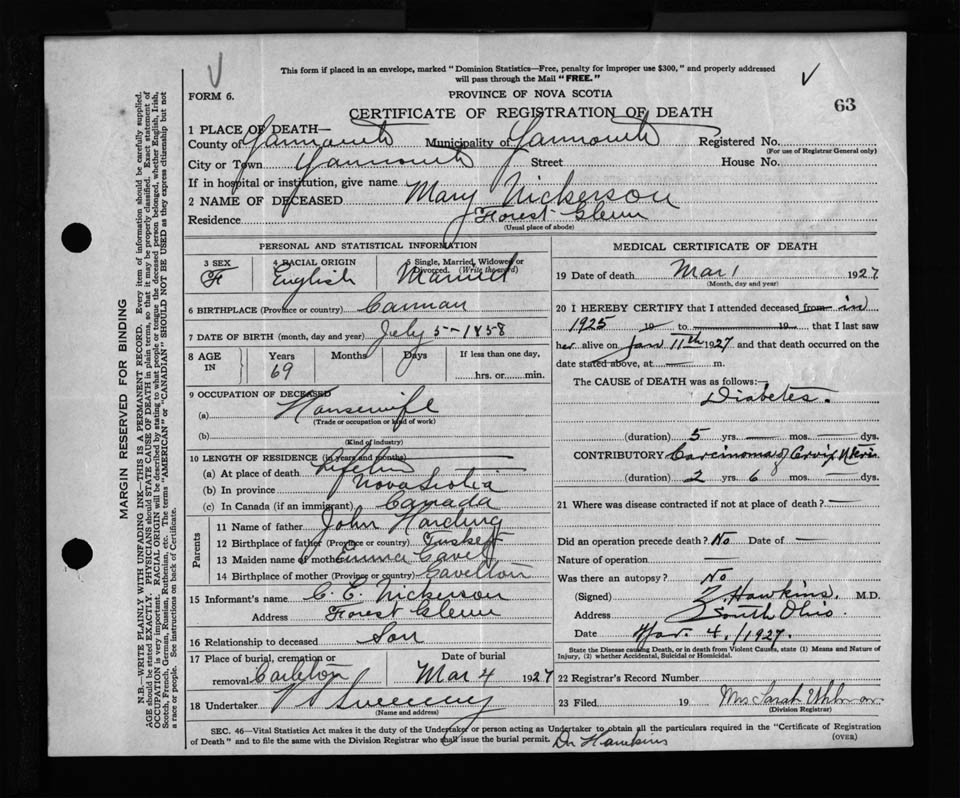 This form if placed in an envelope, marked "Dominion Statistics—Free, penalty for improper use $300," and properly addressed
will pass through the Mail "FREE."
FORM 6.
PROVINCE OF NOVA SCOTIA
63
CERTIFICATE OF REGISTRATION OF DEATH
1 PLACE OF DEATH—
County of Yarmouth Municipality of Yarmouth Registered No.
(For use of Registrar General only)
City or Town Yarmouth Street House No.
If in hospital or institution, give name
2 NAME OF DECEASED Mary Nickerson
Residence Forest Glenn
(Usual place of abode)
PERSONAL AND STATISTICAL INFORMATION
3 SEX 4 RACIAL ORIGIN 5 Single, Married, Widowed or Divorced. (Write the word)
F English Married
6 BIRTHPLACE (Province or country)
7 DATE OF BIRTH (month, day and year) July 5-1858
8 AGE IN Years Months Days If less than one day,
69 hrs. or min.
9 OCCUPATION OF DECEASED
(a) Housewife
(Trade or occupation or kind of work)
(b)
(Kind of industry)
10 LENGTH OF RESIDENCE (in years and months)
(a) At place of death
(b) In province Nova Scotia
(c) In Canada (if an immigrant) Canada
Parents
11 Name of father John Harding
12 Birthplace of father (Province or country) Tusket
13 Maiden name of mother Emma Gavel
14 Birthplace of mother (Province or country) Gavelton
15 Informant's name C. E. Nickerson
Address Forest Glenn
16 Relationship to deceased Son
17 Place of burial, cremation or Date of burial
removal Carleton Mar 4 1927
18 Undertaker V Sweeney
(Name and address)
MEDICAL CERTIFICATE OF DEATH
19 Date of death Mar 1 1927
(Month, day and year)
20 I HEREBY CERTIFY that I attended deceased from in
1925 19 to 19 that I last saw
her alive on Jan 11th 1927 and that death occurred on the
date stated above, at — m.
The CAUSE of DEATH was as follows:—
Diabetes.
(duration) 5 yrs. — mos. — dys.
CONTRIBUTORY Carcinoma of Cervix Uteri
(duration) 2 6 — dys.
21 Where was disease contracted if not at place of death? —
Did an operation precede death? No Date of —
Nature of operation —
Was there an autopsy? No
(Signed) Z. Hawkins. M.D.
Address South Ohio
Date Mar. 4./1927.
State the Disease causing Death, or in death from Violent Causes, state (1) Means and Nature of
Injury, (2) whether Accidental, Suicidal or Homicidal.
22 Registrar's Record Number
23 Filed 19 Mrs Sarah
(Division Registrar)
SEC. 46—Vital Statistics Act makes it the duty of the Undertaker or person acting as Undertaker to obtain all the particulars required in the "Certificate of Registration
of Death" and to file the same with the Division Registrar who shall issue the burial permit. Dr Hawkins
(OVER)
MARGIN RESERVED FOR BINDING
N.B.—WRITE PLAINLY WITH UNFADING INK—THIS IS A PERMANENT RECORD. Every item of information should be carefully supplied.
AGE should be stated EXACTLY. PHYSICIANS should STATE CAUSE OF DEATH in plain terms, so that it may be properly classified. Exact statement of
OCCUPATION is very important. RACIAL ORIGIN will be described by stating to what people or tongue the deceased person belonged, whether English, Irish,
Scotch, French, German, Russian, Ruthenian, etc. The terms "AMERICAN" or "CANADIAN" SHOULD NOT BE USED as they express citizenship but not
a race or people. See instructions on back of Certificate.